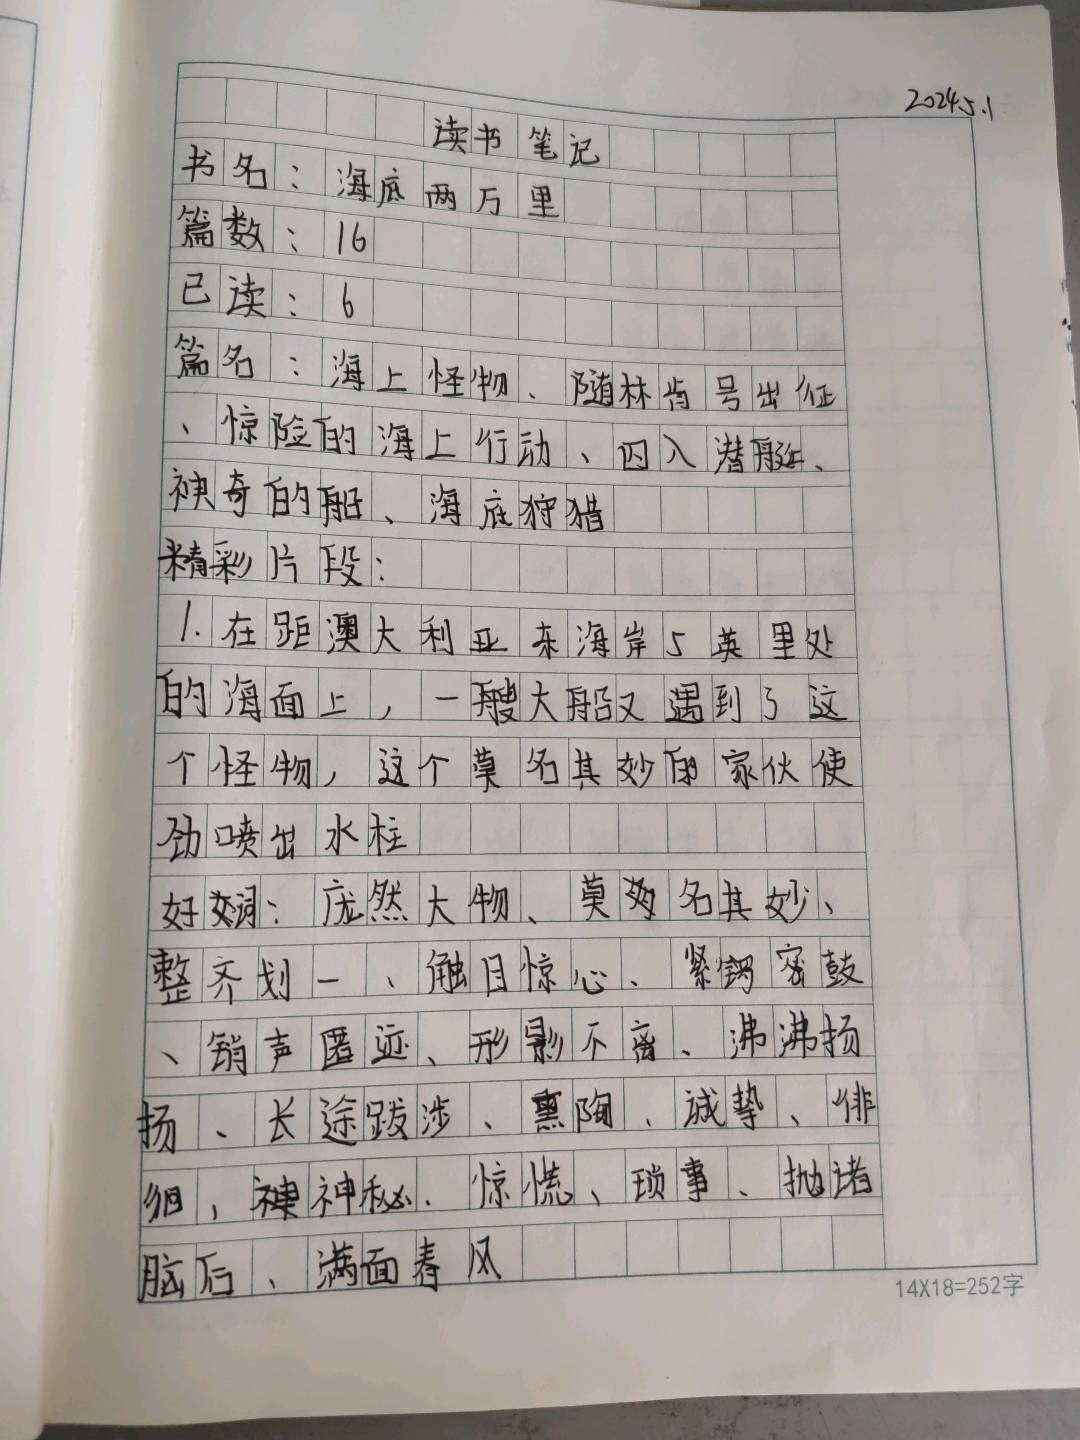 2024.5.1
读书笔记
书名：海底两万里
篇数：16
已读：6
篇名：海上怪物、随林肯号出征
、惊险的海上行动、囚入潜艇、
神奇的船、海底狩猎
精彩片段：
1.在距澳大利亚东海岸5英里处
的海面上，一艘大船又遇到了这
个怪物，这个莫名其妙的家伙使
劲喷出水柱
好词：庞然大物、莫名其妙、
整齐划一、触目惊心、紧锣密鼓
、销声匿迹、形影不离、沸沸扬
扬、长途跋涉、熏陶、诚挚、徘
徊，神秘、惊慌、琐事、抛诸
脑后、满面春风
14X18=252字